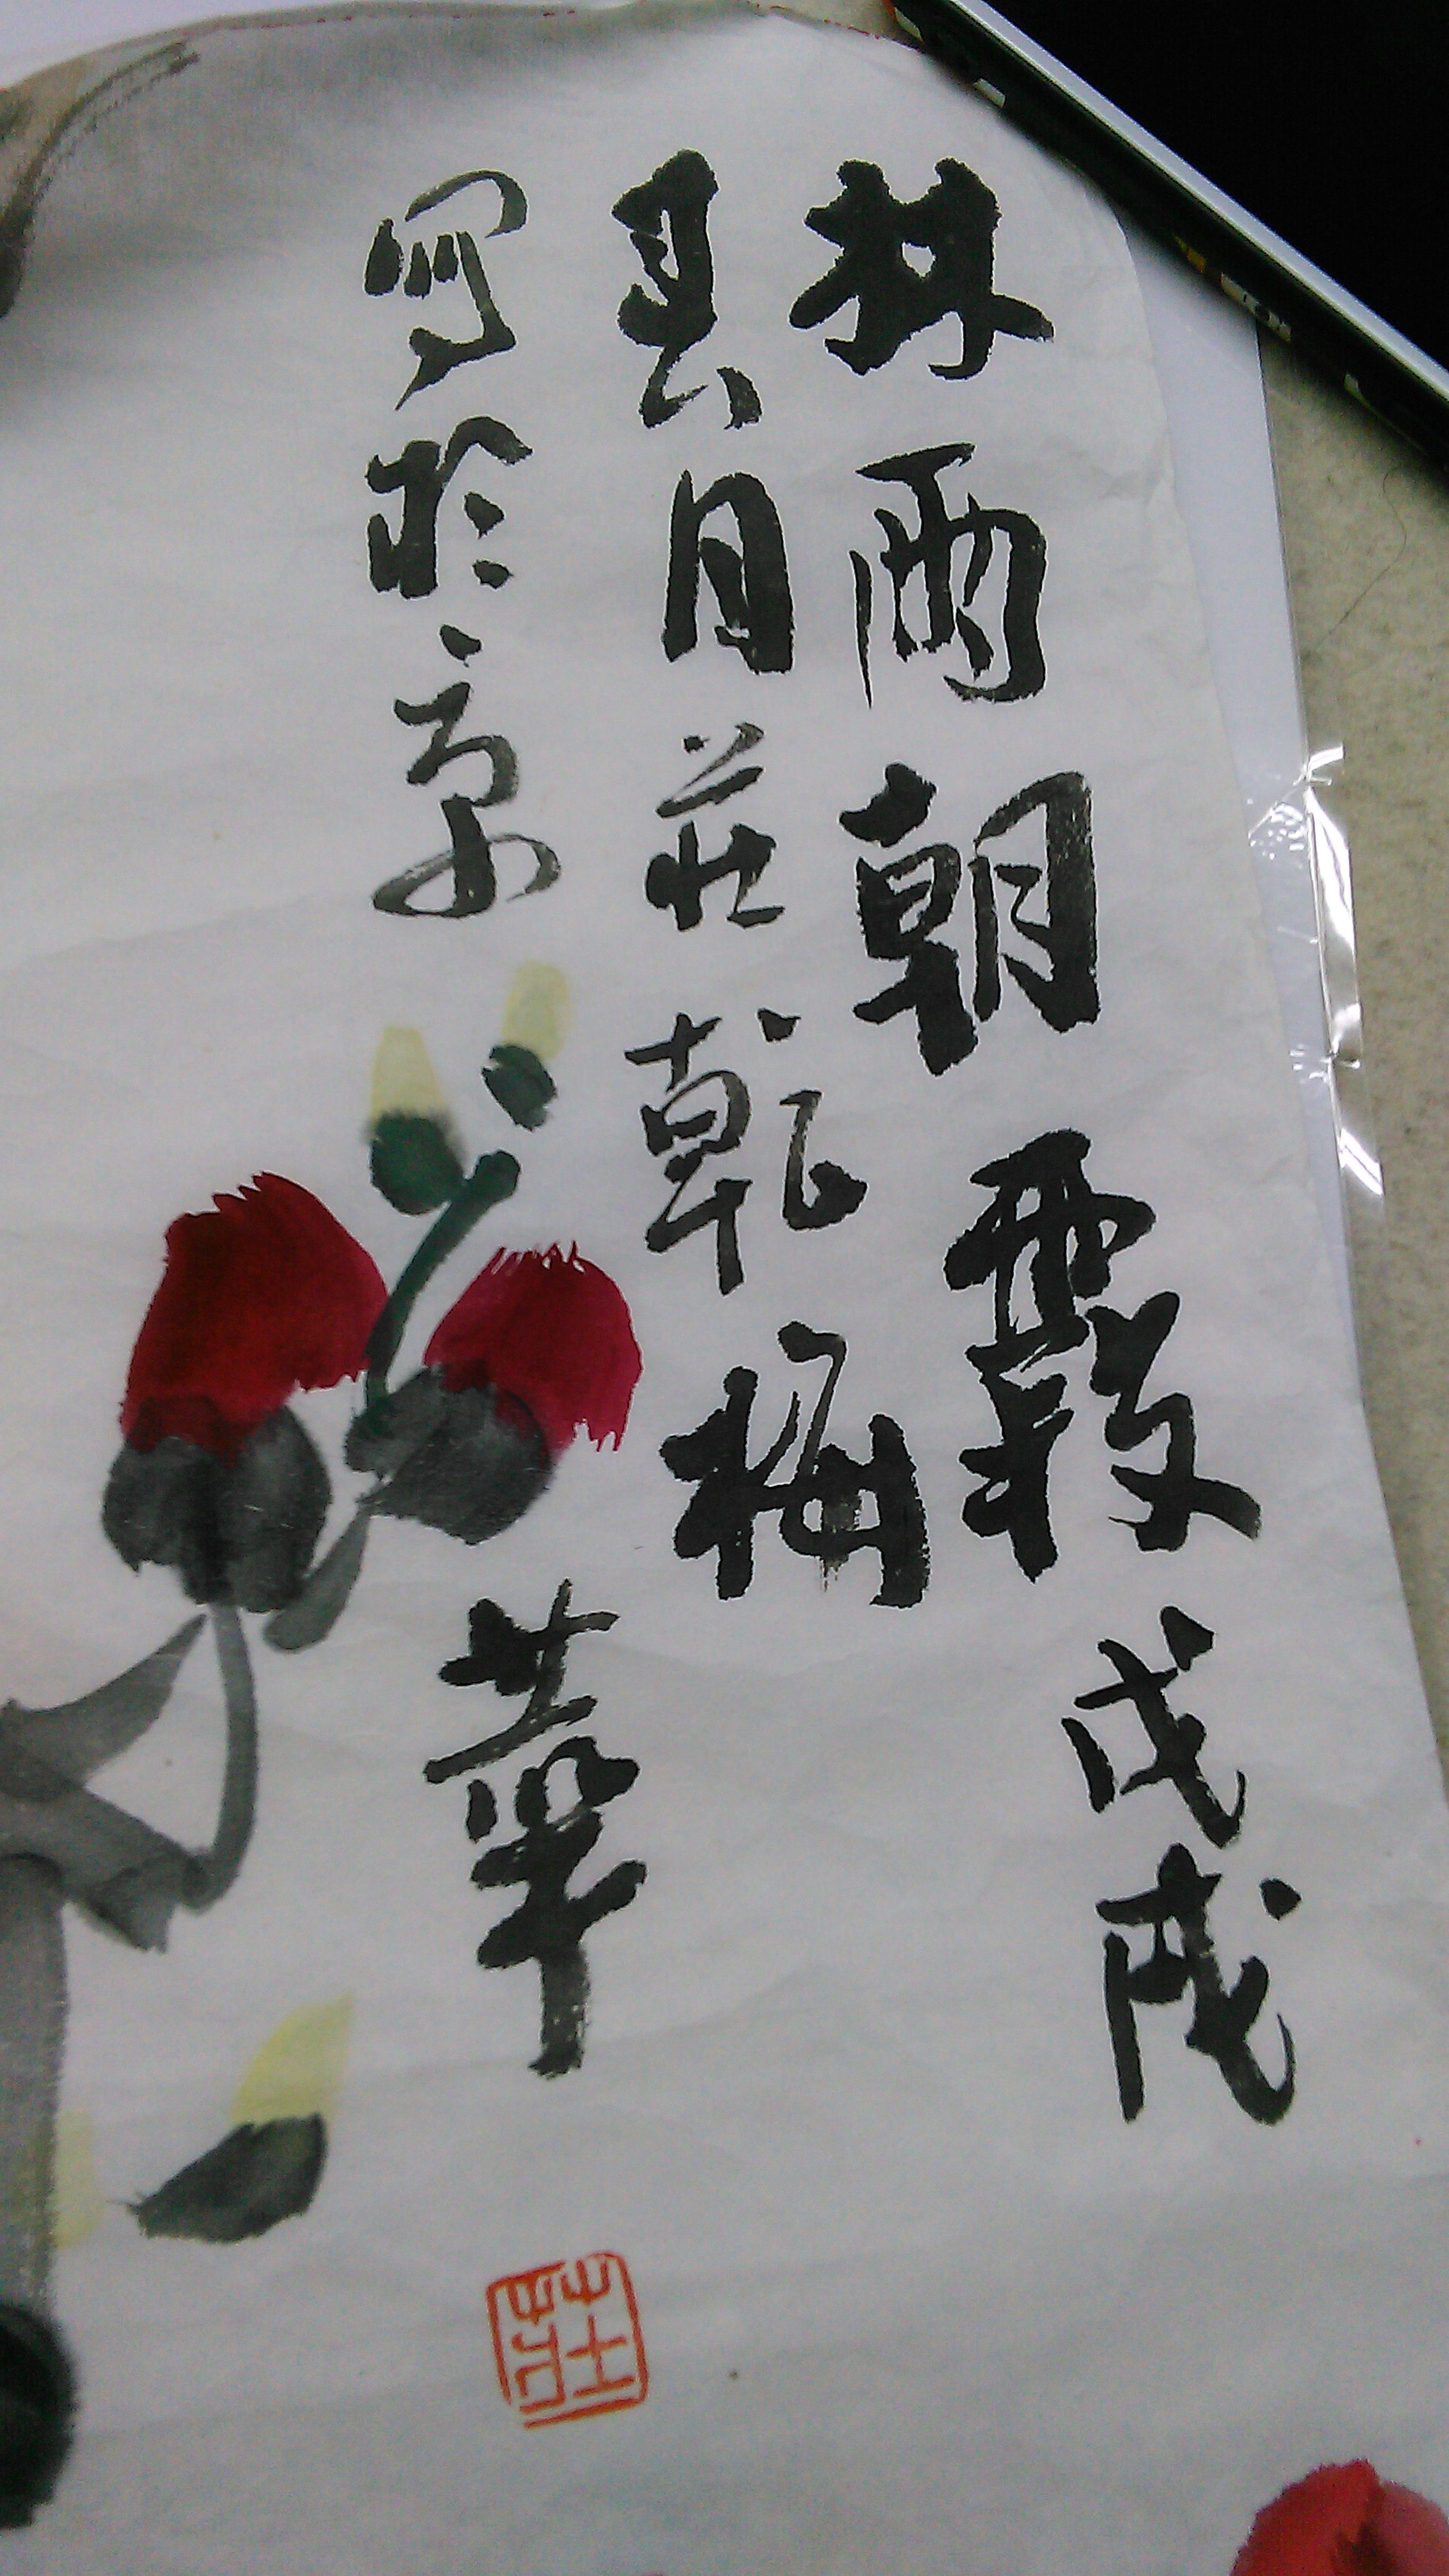 林雨朝霞戊戌
月莊乾梅
寫於京
華